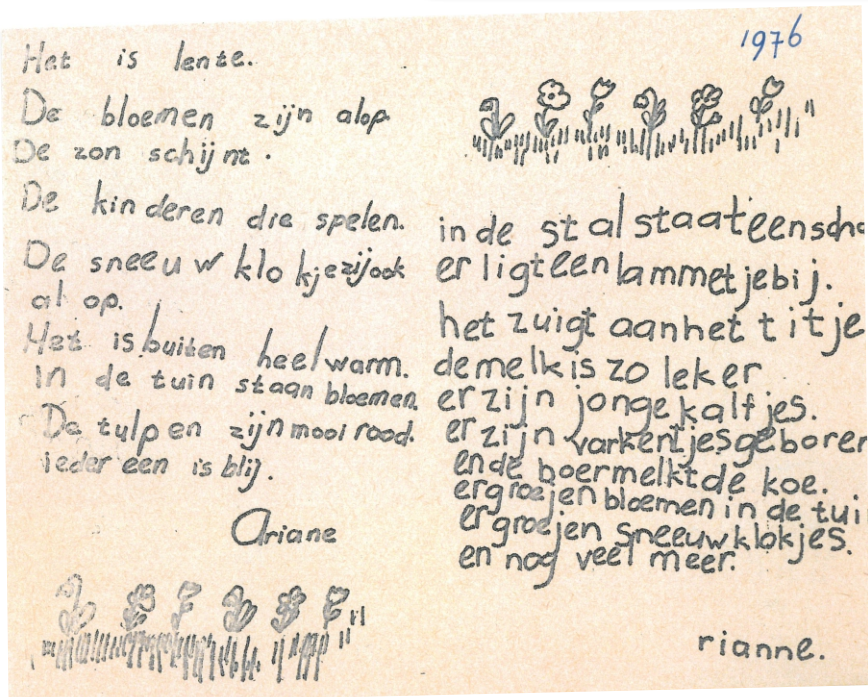 1976
Het is lente.
De bloemen zijn alop.
De zon schijnt.
De kinderen die spelen.
De sneeuwklokjezijook
al op.
Het is buiten heel warm.
In de tuin staan bloemen.
De tulpen zijn mooi rood.
ieder een is blij.
Ariane
in de stal staateen
er ligteen lammetjebij.
het zuigt aanhet titje
demelk is zo leker
er zijn jonge kalfjes.
er zijn varkentjesgeboren
ende boermelktde koe.
ergroejen bloemen in de tui
ergroejen sneeuwklokjes.
en nog veel meer.
rianne.